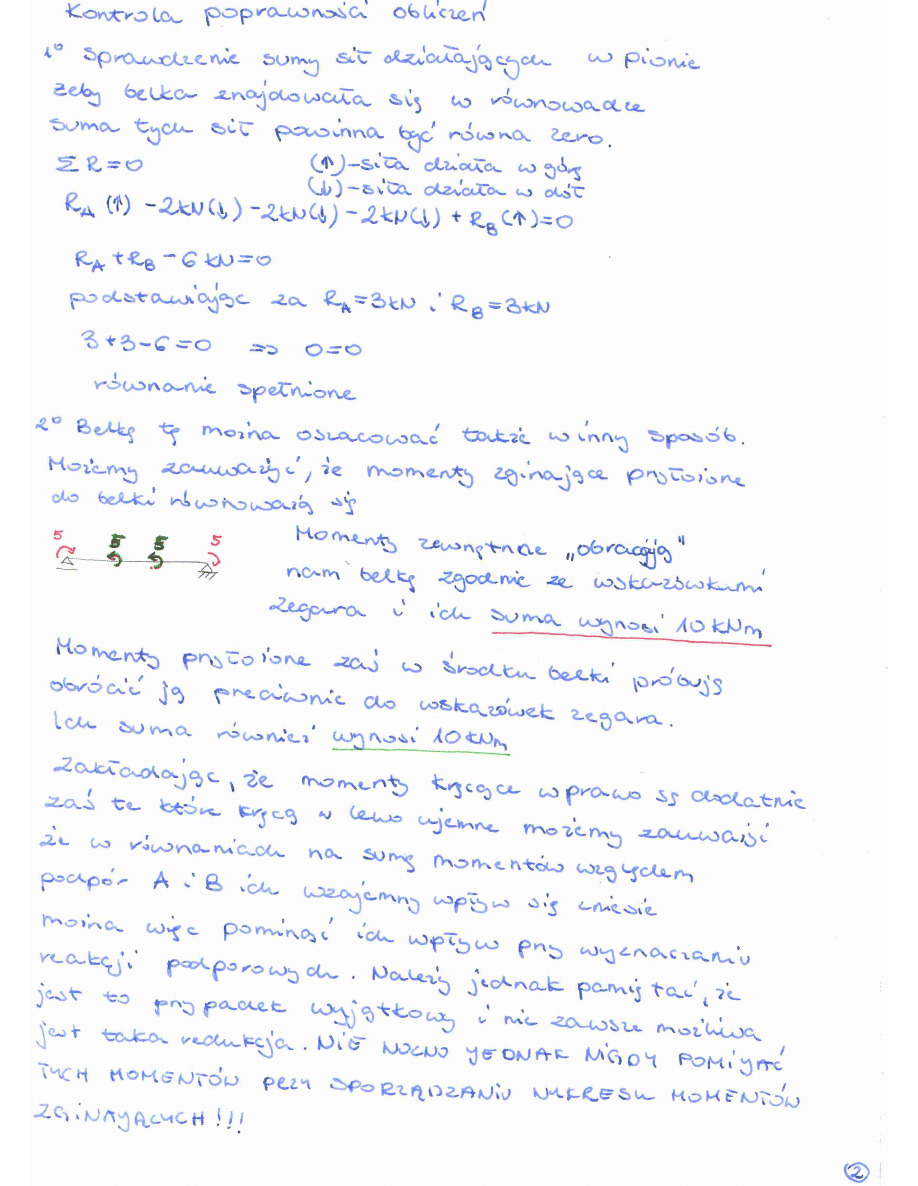 Kontrola poprawności obliczeń
1° Sprawdzenie sumy sił działających w pionie
żeby belka znajdowała się w równowadze
suma tych sił powinna być równa zero.
ΣR=0 (↑)-siła działa w górę
(↓)-siła działa w dół
R_A (↑) -2kN(↓) -2kN(↓) -2kN(↓) + R_B (↑)=0
R_A + R_B - 6 kN=0
podstawiając za R_A=3kN i R_B=3kN
3+3-6=0 => 0=0
równanie spełnione
2° Belkę tę można oszacować także w inny sposób.
Możemy zauważyć, że momenty zginające przyłożone
do belki równoważą się
5 5 5 5
Momenty zewnętrzne „obracają"
nam belkę zgodnie ze wskazówkami
zegara i ich suma wynosi 10 kNm
Momenty przyłożone zaś w środku belki próbują
obrócić ją przeciwnie do wskazówek zegara.
Ich suma również wynosi 10 kNm
Zakładając, że momenty kręcące w prawo są dodatnie
zaś te które kręcą w lewo ujemne możemy zauważyć
że w równaniach na sumę momentów względem
podpór A i B ich wzajemny wpływ się zniesie
można więc pominąć ich wpływ przy wyznaczaniu
reakcji podporowych. Należy jednak pamiętać, że
jest to przypadek wyjątkowy i nie zawsze możliwa
jest taka redukcja. NIE WOLNO JEDNAK NIGDY POMIJAĆ
TYCH MOMENTÓW PRZY SPORZĄDZANIU WYKRESU MOMENTÓW
ZGINAJĄCYCH!!!
2